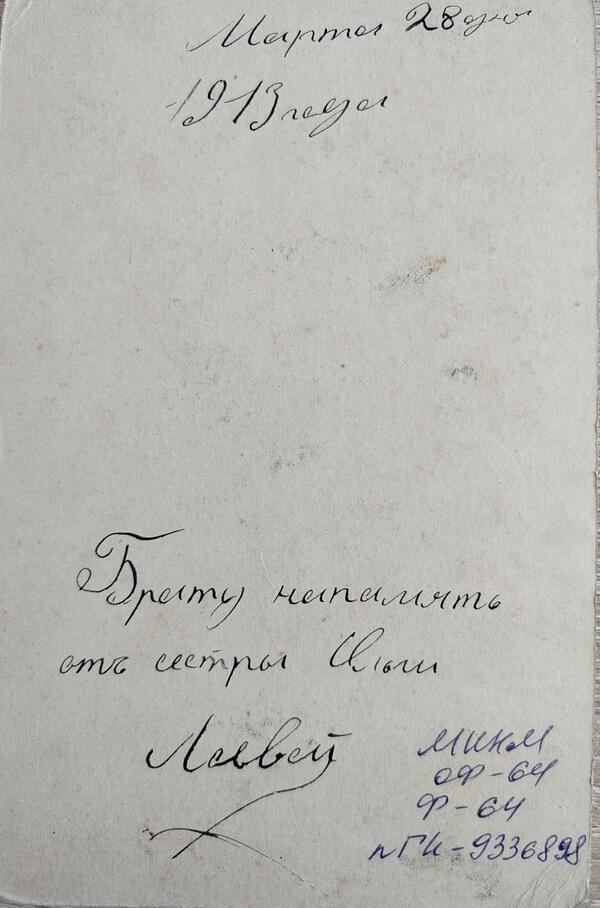 Марта 28 дня
1913 года
Брату напамять
отъ сестры
МИКМ
ОФ-64
Ф-64
пГК-9336898